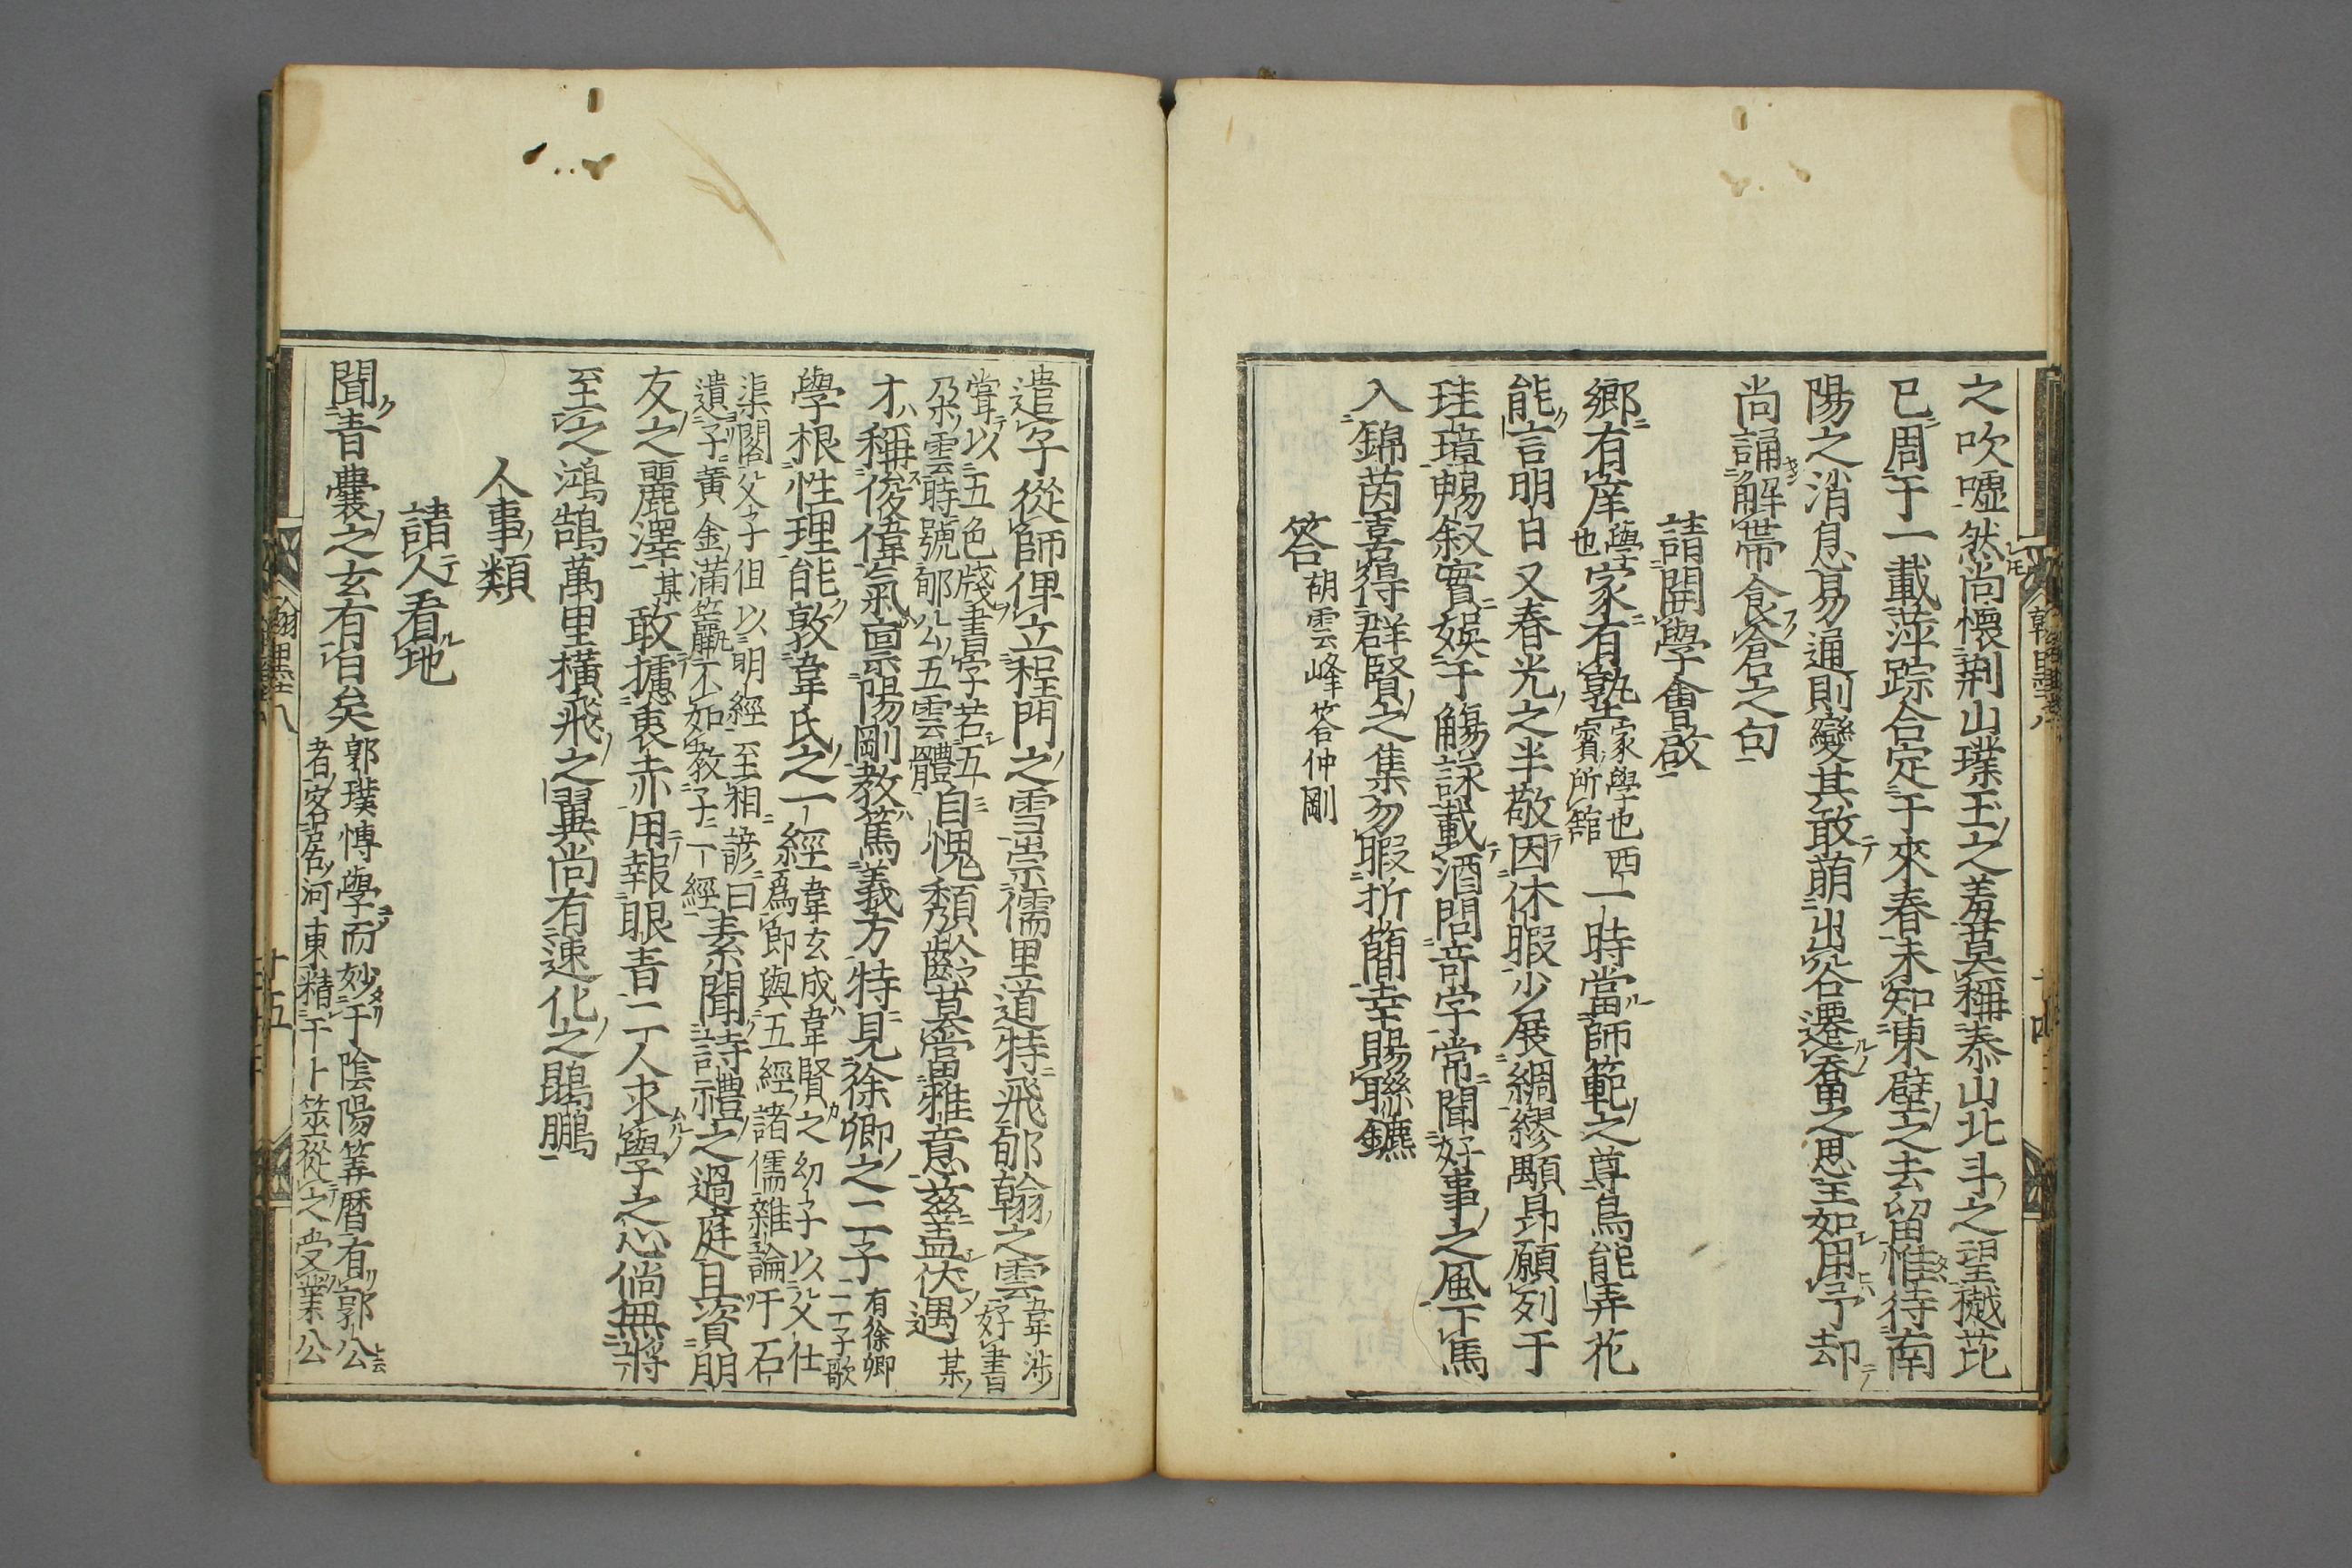 之吹噓然尚懷荆山璞玉之羞莫稱泰山北斗之望樾芘
已周于一載萍踪合定于來春未知東壁之去留惟待南
陽之消息易通則變其敢萌出谷遷喬之思主如用予却
尚誦解帶食倉之句
請開學會啟
鄉有庠學也家有塾家學也西賓所舘一時當師範之尊鳥能弄花
能言明日又春光之半敬因休暇少展綢繆顒昻願列于
珪璋觴叙實娛于觴詠載酒問奇字常聞好事之風下馬
入錦茵喜得群賢之集勿暇折簡幸賜聯鑣
答胡雲峰答仲剛
遣子從師俾立程門之雪崇儒里道特飛郇翰之雲韋涉好書
嘗以五色牋書字若五朶雲時號郇公五雲體自愧頹齡莫當雅意茲蓋伏遇某
才稱俊偉氣禀陽剛教篤義方特見徐卿之二子有徐卿二子歌
學根性理能敦韋氏之一經韋玄成韋賢之幼子以父仕爲郎與五經諸儒雜論于石
渠閣父子俱以明經至相諺曰遺子黄金滿籝不如教子一經素聞詩禮之過庭且資朋
友之麗澤某敢攄裏赤用報眼青一丁人求學之心倘無將
至之鴻鵠萬里橫飛之翼尚有速化之鵾鵬
人事類
請人看地
聞青囊之玄有自矣郭璞博學而妙于陰陽筭曆有郭公者客居河東精于卜筮從之受業公
翰墨八
十五